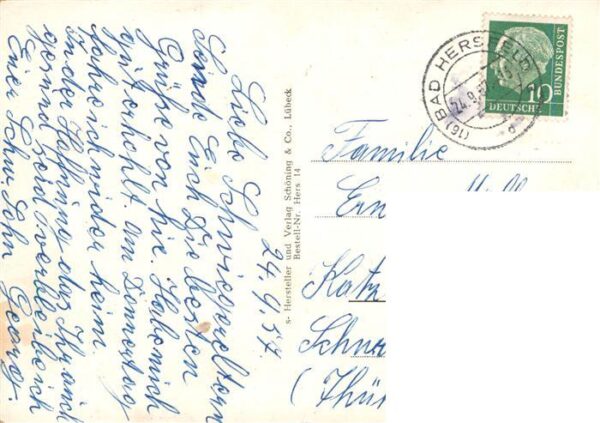 24.9.57.
Liebe Schwiegereltern
Sende Euch Die besten
Grüße von hir. Habe mich
gut erhohlt am Donnerstag
fahre ich wider heim.
In der Hoffnung das Ihr auch
gesund seid verbleibe ich
Euer Schw. Sohn
Georg.
s- Hersteller und Verlag Schöning & Co., Lübeck
Bestell-Nr. Hers 14
(16) BAD HERSFELD
24.9.57
d
10
DEUTSCHE
BUNDESPOST
Familie
Ern
Kat
Schm
(Thü